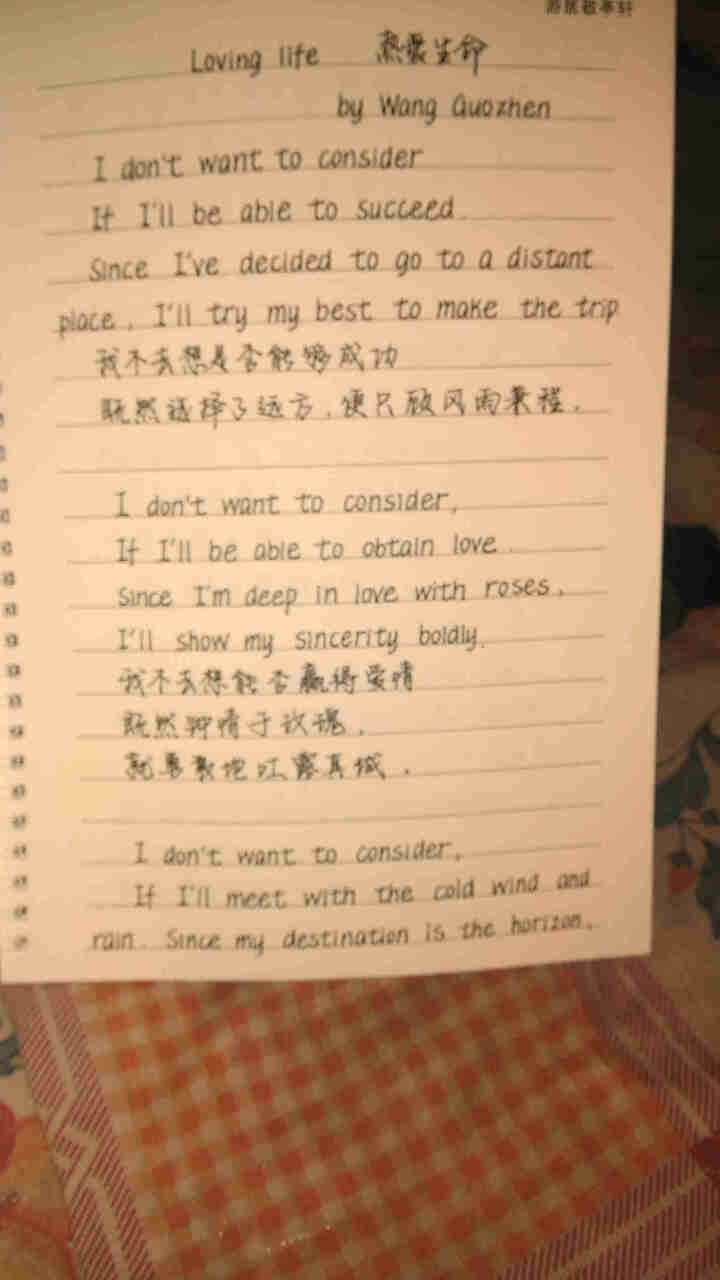 Loving life 热爱生命
by Wang Guozhen
I don't want to consider
If I'll be able to succeed.
Since I've decided to go to a distant
place, I'll try my best to make the trip
我不去想是否能够成功
既然选择了远方,便只顾风雨兼程.
I don't want to consider,
If I'll be able to obtain love.
Since I'm deep in love with roses,
I'll show my sincerity boldly.
我不去想能否赢得爱情
既然钟情于玫瑰,
就勇敢地吐露真诚.
I don't want to consider,
If I'll meet with the cold wind and
rain. Since my destination is the horizon,